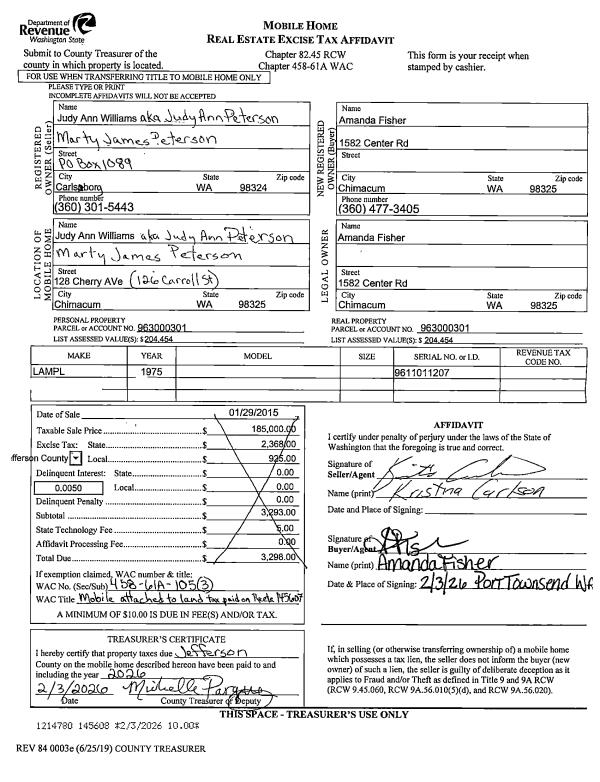 Department of
Revenue
Washington State
MOBILE HOME
REAL ESTATE EXCISE TAX AFFIDAVIT
Submit to County Treasurer of the
county in which property is located.
Chapter 82.45 RCW
Chapter 458-61A WAC
This form is your receipt when
stamped by cashier.
FOR USE WHEN TRANSFERRING TITLE TO MOBILE HOME ONLY
PLEASE TYPE OR PRINT
INCOMPLETE AFFIDAVITS WILL NOT BE ACCEPTED
REGISTERED
OWNER (Seller)
Name
Judy Ann Williams aka Judy Ann Peterson
Marty James Peterson
Street
PO Box 1089
City State Zip code
Carlsborg WA 98324
Phone number
(360) 301-5443
NEW REGISTERED
OWNER (Buyer)
Name
Amanda Fisher
1582 Center Rd
Street
City State Zip code
Chimacum WA 98325
Phone number
(360) 477-3405
LOCATION OF
MOBILE HOME
Name
Judy Ann Williams aka Judy Ann Peterson
Marty James Peterson
Street
128 Cherry AVe (126 Carroll St)
City State Zip code
Chimacum WA 98325
LEGAL OWNER
Name
Amanda Fisher
Street
1582 Center Rd
City State Zip code
Chimacum WA 98325
PERSONAL PROPERTY
PARCEL or ACCOUNT NO. 963000301
LIST ASSESSED VALUE(S): $ 204,454
REAL PROPERTY
PARCEL or ACCOUNT NO. 963000301
LIST ASSESSED VALUE(S): $ 204,454
MAKE YEAR MODEL SIZE SERIAL NO. or I.D. REVENUE TAX CODE NO.
LAMPL 1975 9611011207
Date of Sale 01/29/2015
Taxable Sale Price $ 185,000.00
Excise Tax: State $ 2,368.00
fferson County Local $ 925.00
Delinquent Interest: State $ 0.00
0.0050 Local $ 0.00
Delinquent Penalty $ 0.00
Subtotal $ 3,293.00
State Technology Fee $ 5.00
Affidavit Processing Fee $ 0.00
Total Due $ 3,298.00
If exemption claimed, WAC number & title:
WAC No. (Sec/Sub) 458-61A-105(3)
WAC Title Mobile attached to land tax paid on Reete 145607
A MINIMUM OF $10.00 IS DUE IN FEE(S) AND/OR TAX.
AFFIDAVIT
I certify under penalty of perjury under the laws of the State of
Washington that the foregoing is true and correct.
Signature of
Seller/Agent
Name (print) Kristina Carlson
Date and Place of Signing:
Signature of
Buyer/Agent
Name (print) Amanda Fisher
Date & Place of Signing: 2/3/26 Port Townsend WA
TREASURER'S CERTIFICATE
I hereby certify that property taxes due Jefferson
County on the mobile home described hereon have been paid to and
including the year 2026
2/3/2026 Michelle
Date County Treasurer or Deputy
If, in selling (or otherwise transferring ownership of) a mobile home
which possesses a tax lien, the seller does not inform the buyer (new
owner) of such a lien, the seller is guilty of deliberate deception as it
applies to Fraud and/or Theft as defined in Title 9 and 9A RCW
(RCW 9.45.060, RCW 9A.56.010(5)(d), and RCW 9A.56.020).
THIS SPACE - TREASURER'S USE ONLY
1214780 145608 *2/3/2026 10.00*
REV 84 0003e (6/25/19) COUNTY TREASURER